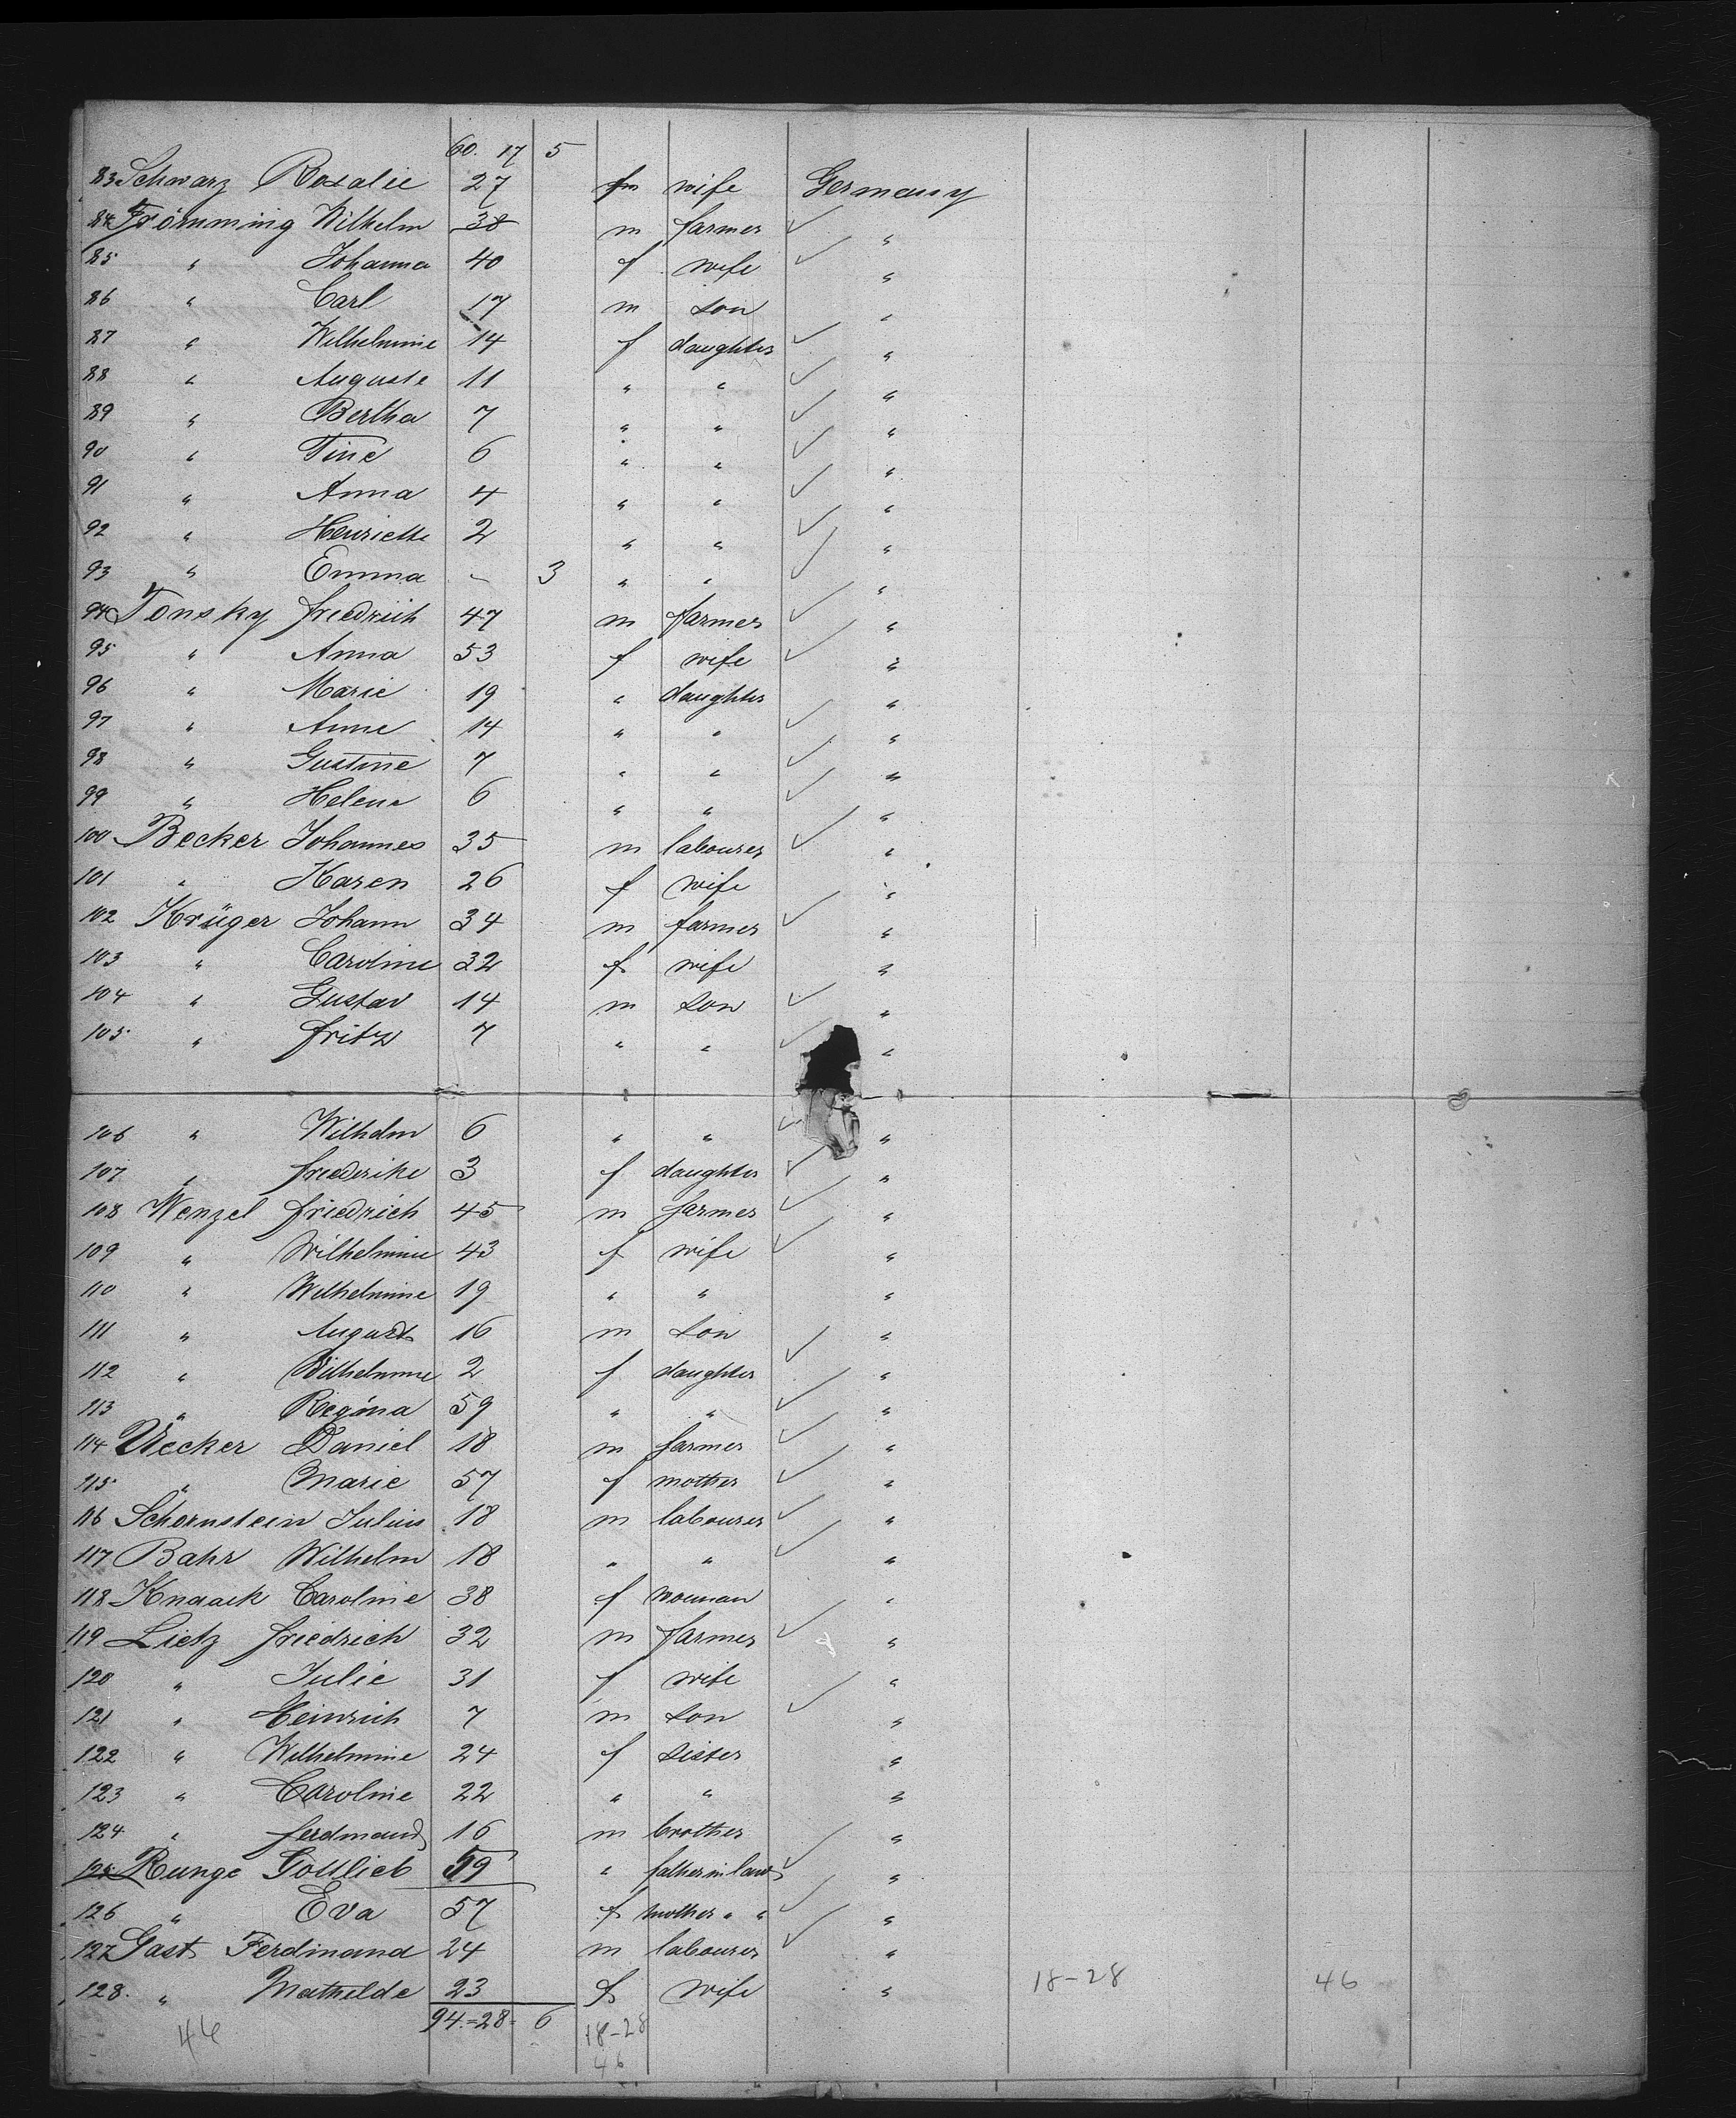 60. 17 5
83 Schwarz Rosalie 27 f wife Germany
84 Frömming Wilhelm 38 m farmer "
85 " Johanna 40 f wife "
86 " Carl 17 m son "
87 " Wilhelmine 14 f daughter "
88 " Auguste 11 " " "
89 " Bertha 7 " " "
90 " Tine 6 " " "
91 " Anna 4 " " "
92 " Henriette 2 " " "
93 " Emma - 3 " " "
94 Tonsky Friedrich 47 m farmer "
95 " Anna 53 f wife "
96 " Marie 19 " daughter "
97 " Anne 14 " " "
98 " Gustine 7 " " "
99 " Helene 6 " " "
100 Becker Johannes 35 m labourer "
101 " Karen 26 f wife "
102 Krüger Johann 34 m farmer "
103 " Caroline 32 f wife "
104 " Gustav 14 m son "
105 " Fritz 7 " " "
106 " Wilhelm 6 " " "
107 " Friederike 3 f daughter "
108 Wenzel Friedrich 45 m farmer "
109 " Wilhelmine 43 f wife "
110 " Wilhelmine 19 " " "
111 " August 16 m son "
112 " Wilhelmine 2 f daughter "
113 " Regina 59 " " "
114 Uecker Daniel 18 m farmer "
115 " Marie 57 f mother "
116 Schornstein Julius 18 m labourer "
117 Bahr Wilhelm 18 " " "
118 Knaack Caroline 38 f woman "
119 Lietz Friedrich 32 m farmer "
120 " Julie 31 f wife "
121 " Heinrich 7 m son "
122 " Wilhelmine 24 f sister "
123 " Caroline 22 " " "
124 " Ferdinand 16 m brother "
125 Runge Gottlieb 59 " father in law "
126 " Eva 57 f mother " " "
127 Gast Ferdinand 24 m labourer "
128. " Mathilde 23 f wife " 18-28 46
94=28= 6 18-28
46 46